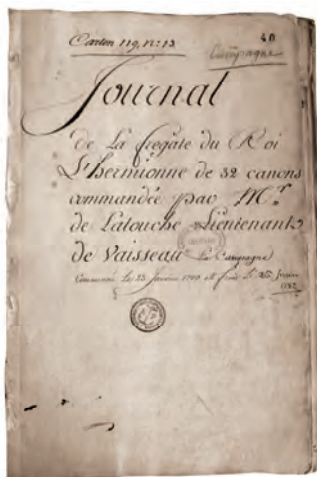 Carton 119, n:º 13
40
Campagne
Journal
de La fregate du Roi
L'hermionne de 32 canons
commandée par Mr.
de Latouche Lieutenant
de Vaisseau La Campagne
Commencé Le 23 1780 et finie Le
1782